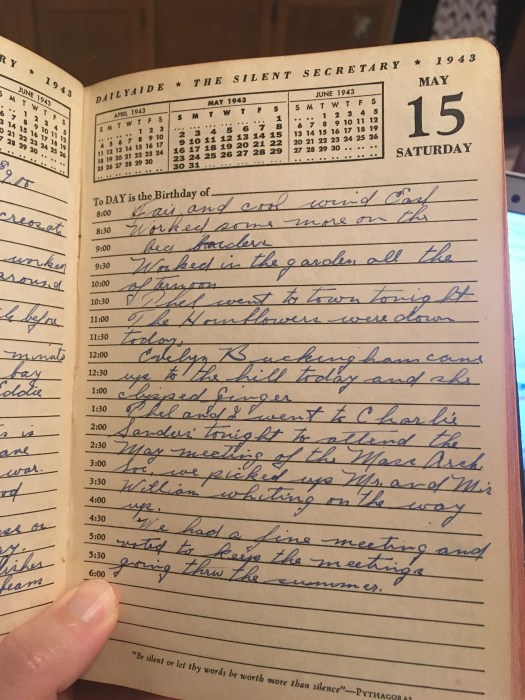 RY ★ 1943
JUNE 1943
S M T W T F S
creosote
worked
around
before
minute
bay
Eddie
is
war.
DAILYAIDE ★ THE SILENT SECRETARY ★ 1943
APRIL 1943
S M T W T F S
. . . . 1 2 3
4 5 6 7 8 9 10
11 12 13 14 15 16 17
18 19 20 21 22 23 24
25 26 27 28 29 30
MAY 1943
S M T W T F S
. . . . . . 1
2 3 4 5 6 7 8
9 10 11 12 13 14 15
16 17 18 19 20 21 22
23 24 25 26 27 28 29
30 31
JUNE 1943
S M T W T F S
. . 1 2 3 4 5
6 7 8 9 10 11 12
13 14 15 16 17 18 19
20 21 22 23 24 25 26
27 28 29 30
MAY
15
SATURDAY
To DAY is the Birthday of
8:00 Fair and cool wind East
8:30 Worked some more on the
9:00 bed borders
9:30 Worked in the garden all the
10:00 afternoon
10:30 Phel went to town tonight
11:00 The Hornblowers were down
11:30 today,
12:00 Evelyn Buckingham came
12:30 up to the hill today and she
1:00 clipped Ginger
1:30 Phel and I went to Charlie
2:00 Sanders tonight to attend the
2:30 May meeting of the Mass Arch
3:00 Soc. we picked up Mr. and Mrs
3:30 William whiting on the way
4:00 up.
4:30 We had a fine meeting and
5:00 voted to keep the meetings
5:30 going thru the summer.
6:00
"Be silent or let thy words be worth more than silence"—PYTHAGORAS